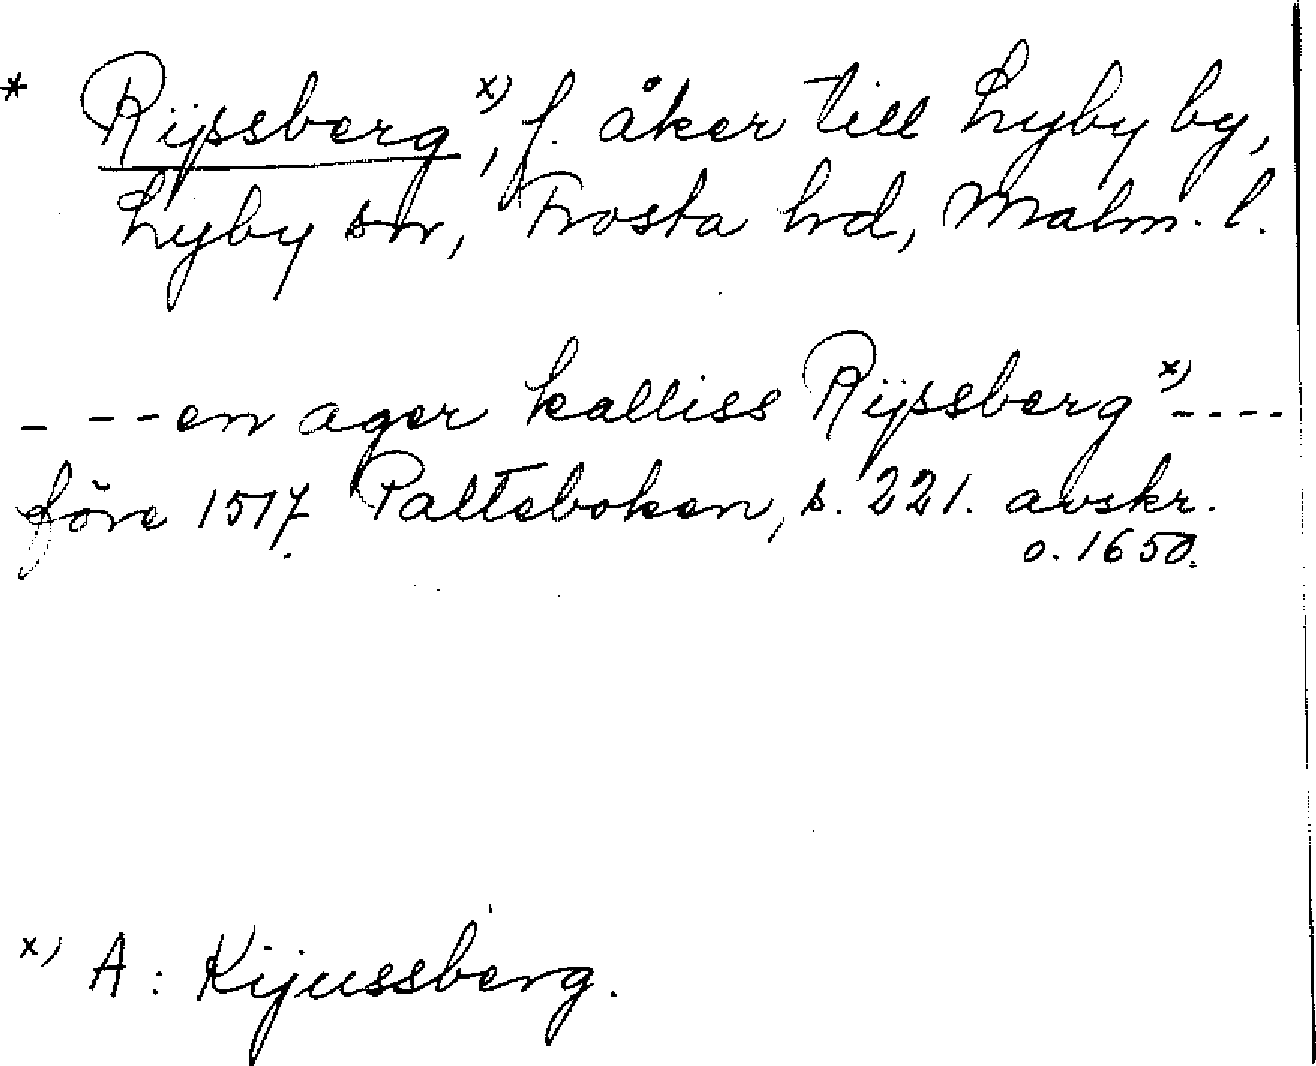 * Rijssberg x), f. åker till Lyby by,
Lyby sn, Frosta hd, Malm. l.
- - - en ager kalliss Rijssberg x) - - - -
före 1517. Palteboken, s. 221. avskr.
o. 1650.
x) A: Kijussberg.